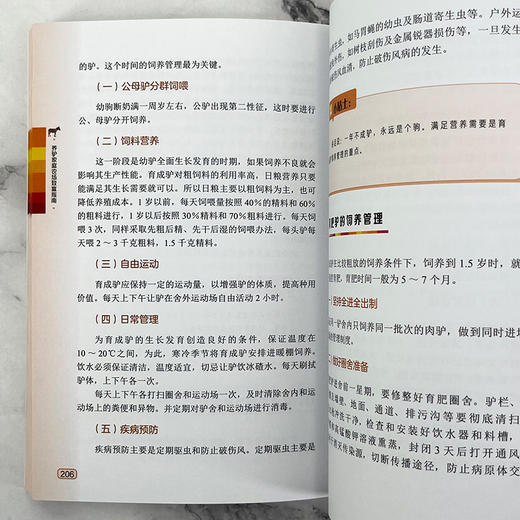 的驴。这个时间的饲养管理最为关键。
（一）公母驴分群饲喂
幼驹断奶满一周岁左右，公驴出现第二性征，这时要进行
公、母驴分开饲养。
（二）饲料营养
这一阶段是幼驴全面生长发育的时期，如果饲养不良就会
影响其生产性能。育成驴对粗饲料的利用率高，日粮营养只要
能满足其生长需要就可以。所以日粮主要以粗饲料为主，也可
降低养殖成本。1 岁以前，每天饲喂量按照 40%的精料和 60%
的粗料进行，1 岁以后按照 30%精料和 70%粗料进行。每天饲
喂 3 次，同样采取先粗后精、先干后湿的饲喂办法，每头驴每
天喂 2～3 千克粗料，1.5 千克精料。
（三）自由运动
育成驴应保持一定的运动量，以增强驴的体质，提高种用
价值。每天上下午让驴在舍外运动场自由活动 2 小时。
（四）日常管理
为育成驴的生长发育创造良好的条件，保证温度在
10～20℃之间，为此，寒冷季节将育成驴安排进暖棚饲养。
饮水必须保证清洁，温度适宜，切忌让驴饮冰碴水。每天刷拭
驴体，上下午各一次。
每天上下午各打扫圈舍和运动场一次，及时清除舍内和运
动场上的粪便和异物。并定期对驴舍和运动场进行消毒。
（五）疾病预防
疾病预防主要是定期驱虫和防止破伤风。定期驱虫主要是
206
养驴家庭农场致富指南
生虫，如马胃蝇的幼虫及肠道寄生虫等。户外运
时，如树枝刮伤及金属锐器损伤等，一旦发生
伤风血清，防止破伤风病的发生。
小贴士：
说：一年不成驴，永远是个驹。满足营养需要是育
养管理的重点。
肥驴的饲养管理
在比较粗放的饲养条件下，饲养到 1.5 岁时，就
育肥，育肥时间一般为 5～7 个月。
坚持全进全出制
驴舍内只饲养同一批次的肉驴，做到同时进
管理制度。
做好圈舍准备
前一星期，要修整好育肥圈舍。驴栏、
墙壁、地面、通道、排污沟等要彻底清扫
冲洗干净，检查和安装好饮水器和料槽，
高锰酸钾溶液熏蒸，封闭 3 天后打开通风
灭传染源，切断传播途径，防止病原体交